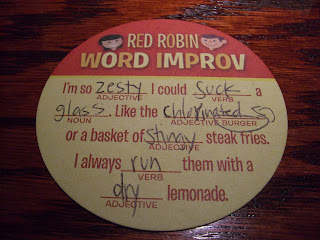 RED ROBIN
WORD IMPROV
I'm so zesty I could suck a
ADJECTIVE VERB
glass. Like the chlorinated
NOUN ADJECTIVE BURGER
or a basket of slimy steak fries.
ADJECTIVE
I always run them with a
VERB
dry lemonade.
ADJECTIVE